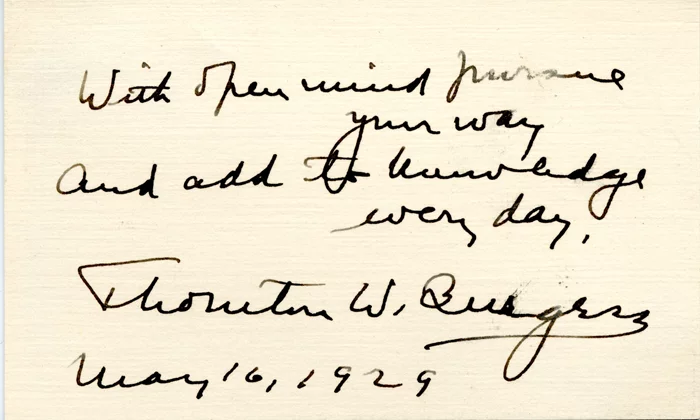 With open mind pursue
your way
And add to knowledge
every day.
Thornton W. Burgess
May 16, 1929